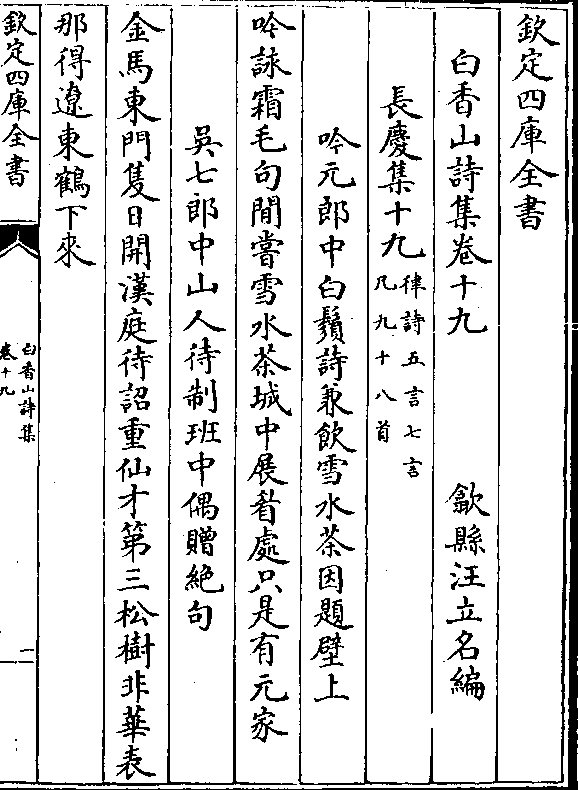 欽定四庫全書
白香山詩集卷十九
歙縣汪立名編
長慶集十九
律詩五言七言
凡九十八首
吟元郎中白鬚詩兼飲雪水茶因題壁上
吟詠霜毛句閒嘗雪水茶城中展眉處只是有元家
吳七郎中山人待制班中偶贈絶句
金馬東門隻日開漢庭待詔重仙才第三松樹非華表
那得遼東鶴下來
欽定四庫全書
白香山詩集
卷十九
一